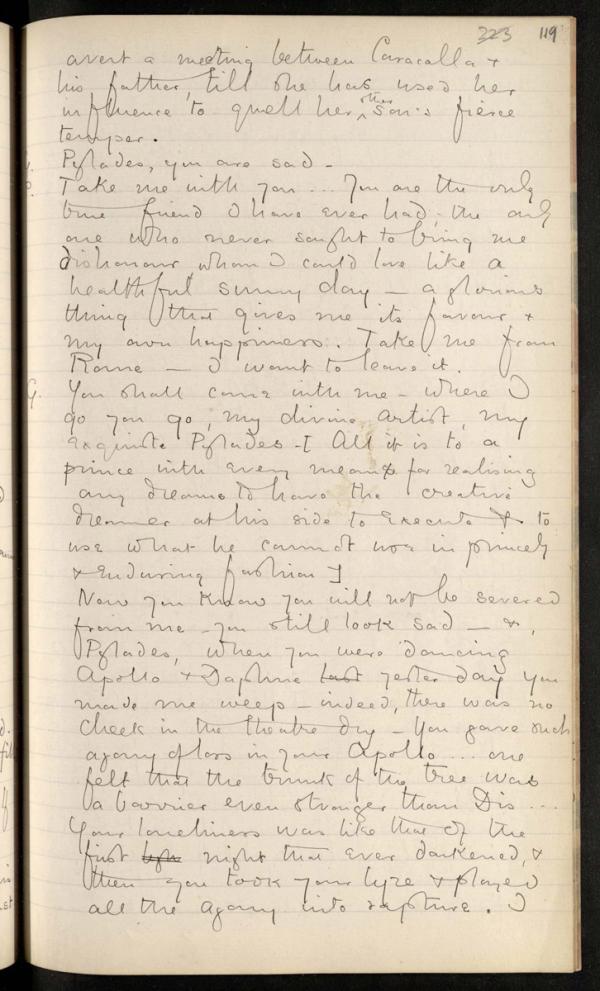 323 119
avert a meeting between Caracalla &
his father, till she has used her
influence to quell her other son's fierce
temper.
Pylades, you are sad –
P. Take me with you ... You are the only
true friend I have ever had; the only
one who never sought to bring me
dishonour, whom I could love like a
healthful sunny day – a glorious
thing that gives me its favour &
my own happiness. Take me from
Rome – I want to leave it.
G. You shall come with me – where I
go you go, my divine artist, my
exquisite Pylades – [ All it is to a
prince with every means for realising
any dreams to have the creative
dreamer at his side to execute & to
use what he cannot use in princely
& enduring fashion ]
Now you know you will not be severed
from me – you still look sad – &,
Pylades, when you were dancing
Apollo & Daphne last yesterday you
made me weep – indeed, there was no
cheek in the theatre dry – You gave such
agony of loss in your Apollo ... one
felt that the trunk of the tree was
a barrier even stronger than Dis ...
Your loneliness was like that of the
first night that ever darkened, &
then you took your lyre & played
all the agony into rapture. I